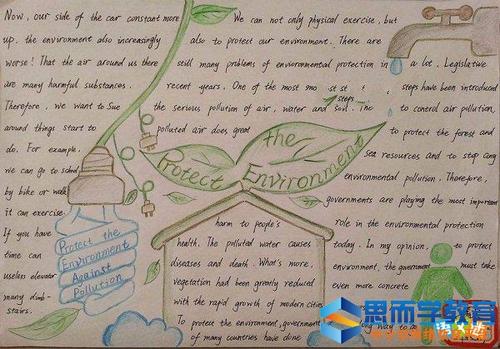 Now, our side of the car constant more
up. the environment also increasingly
worse! That the air around us there
are many harmful substances.
Therefore, we want to Sue
around things start to
do. For example.
we can go to school
by bike or walk
it can exercise
If you have
time can
useless elevator
many climb-
stairs.
We can not only physical exercise, but
also to protect our environment. There are
still many problems of environmental protection in
recent years. One of the most smo st st
steps
the serious pollution of air, water and soil. The
polluted air does great
Protect the Environment
harm to people's
health. The polluted water causes
diseases and death. What's more,
vegetation had been greatly reduced
with the rapid growth of modern cities
To protect the environment, government
of many countries have done
a lot. Legislative
steps have been introduced
to conerol air pollution,
to protect the forest and
Sea resources and to stop any
environmental pollution. Therefore,
governments are playing the most important
role in the environmental protection
today. In my opinion, to protect
environment, the government must take
even more concrete
long way to
Protect the
Environment
Against
Pollution
思而学教育